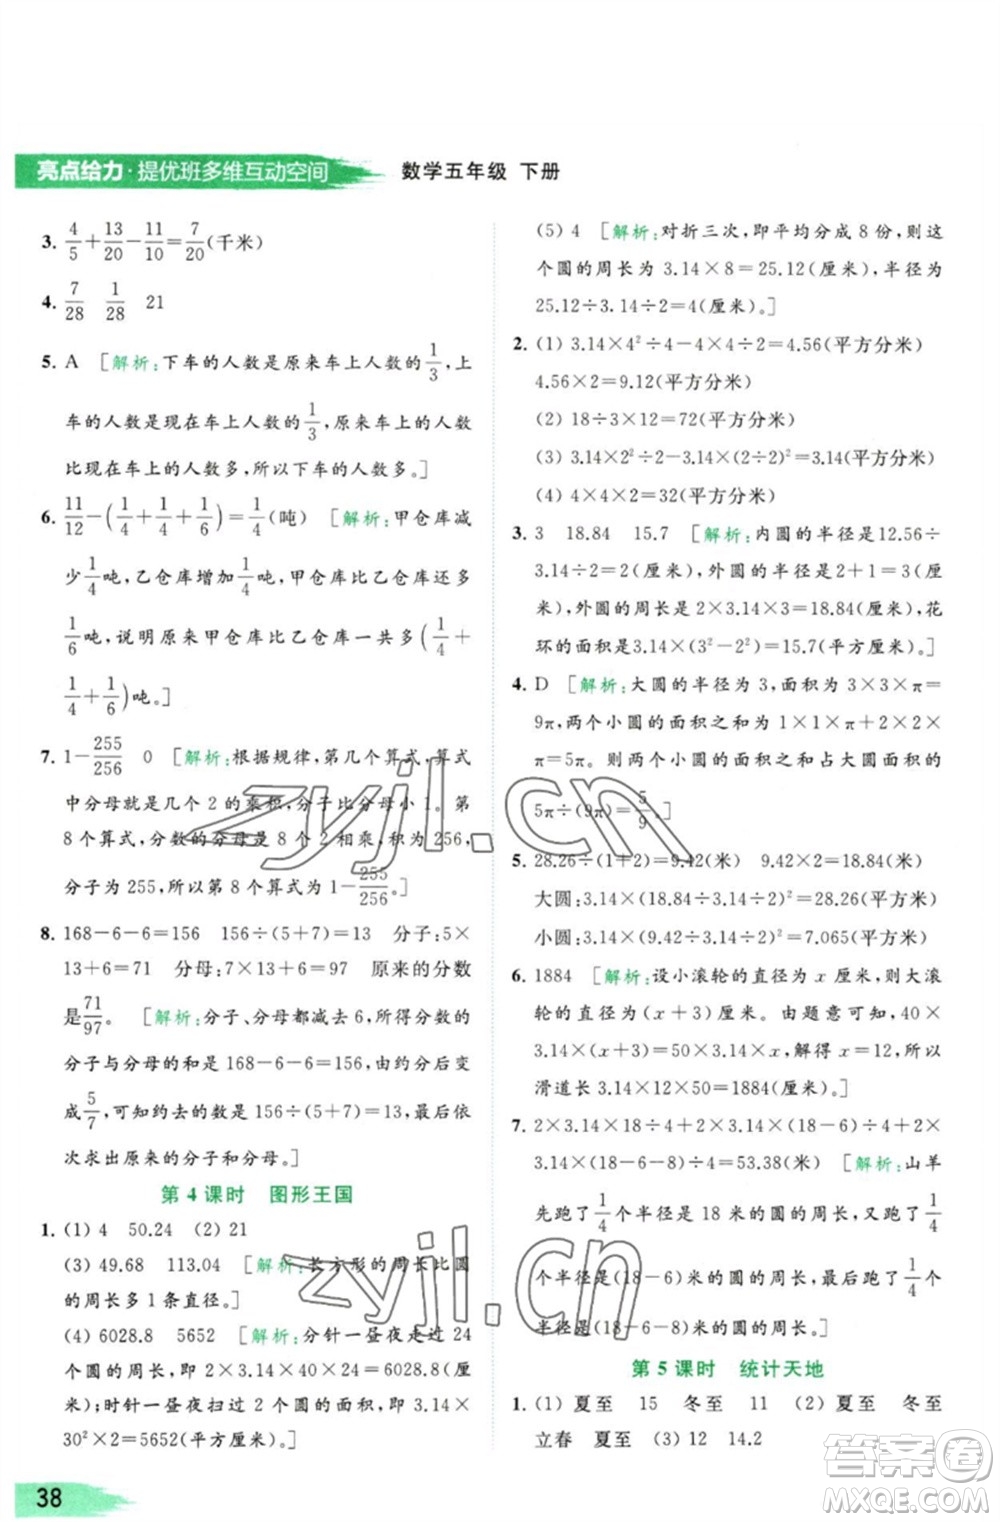 亮点给力·提优班多维互动空间 数学五年级 下册
3. 4/5+13/20-11/10=7/20(千米)
4. 7/28 1/28 21
5. A [解析:下车的人数是原来车上人数的1/3,上
车的人数是现在车上人数的1/3,原来车上的人数
比现在车上的人数多,所以下车的人数多。]
6. 11/12-(1/4+1/4+1/6)=1/4(吨) [解析:甲仓库减
少1/4吨,乙仓库增加1/4吨,甲仓库比乙仓库还多
1/6吨,说明原来甲仓库比乙仓库一共多(1/4+
1/4+1/6)吨。]
7. 1-255/256 0 [解析:根据规律,第几个算式,算式
中分母就是几个2的乘积,分子比分母小1。第
8个算式,分数的分母是8个2相乘,积为256,
分子为255,所以第8个算式为1-255/256。]
8. 168-6-6=156 156÷(5+7)=13 分子:5×
13+6=71 分母:7×13+6=97 原来的分数
是71/97。 [解析:分子、分母都减去6,所得分数的
分子与分母的和是168-6-6=156,由约分后
成5/7,可知约去的数是156÷(5+7)=13,最后依
次求出原来的分子和分母。]
第4课时 图形王国
1. (1) 4 50.24 (2) 21
(3) 49.68 113.04 [解析:长方形的周长比圆
的周长多1条直径。]
(4) 6028.8 5652 [解析:分针一昼夜走过24
个圆的周长,即2×3.14×40×24=6028.8(厘
米);时针一昼夜扫过2个圆的面积,即3.14×
30²×2=5652(平方厘米)。]
(5) 4 [解析:对折三次,即平均分成8份,有这
个圆的周长为3.14×8=25.12(厘米),半径为
25.12÷3.14÷2=4(厘米)。]
2. (1) 3.14×4²÷4-4×4÷2=4.56(平方分米)
4.56×2=9.12(平方分米)
(2) 18÷3×12=72(平方分米)
(3) 3.14×2²÷2-3.14×(2÷2)²=3.14(平方分米)
(4) 4×(4×2)=32(平方分米)
3. 3 18.84 15.7 [解析:内圆的半径是12.56÷
3.14÷2=2(厘米),外圆的半径是2+1=3(厘
米),外圆的周长是2×3.14×3=18.84(厘米),花
环的面积是3.14×(3²-2²)=15.7(平方厘米)。]
4. D [解析:大圆的半径为3,面积为3×3×π=
9π,两个小圆的面积之和为1×1×π+2×2×
π=5π。则两个小圆的面积之和占大圆面积的
5π÷(9π)=5/9。]
5. 28.26÷(1+2)=9.42(米) 9.42×2=18.84(米)
大圆:3.14×(18.84÷3.14÷2)²=28.26(平方米)
小圆:3.14×(9.42÷3.14÷2)²=7.065(平方米)
6. 1884 [解析:设小滚轮的直径为x厘米,则大滚
轮的直径为(x+3)厘米。由题意可知,40×
3.14×(x+3)=50×3.14x,解得x=12,所以
滑道长3.14×12×50=1884(厘米)。]
7. 2×3.14×18÷4+2×3.14×(18-6)÷4+2×
3.14×(18-6-6)÷2=53.38(米) [解析:山羊
先跑了1/4个半径是18米的圆的周长,又跑了1/4
个半径是(18-6)米的圆的周长,最后跑了1/4个
半径是(18-6-8)米的圆的周长。]
第5课时 统计天地
1. (1) 夏至 15 冬至 11 (2) 夏至 冬至
立春 夏至 (3) 12 14.2
38
zyjl.cn
zyjl.cn
答案圈
MXQE.COM